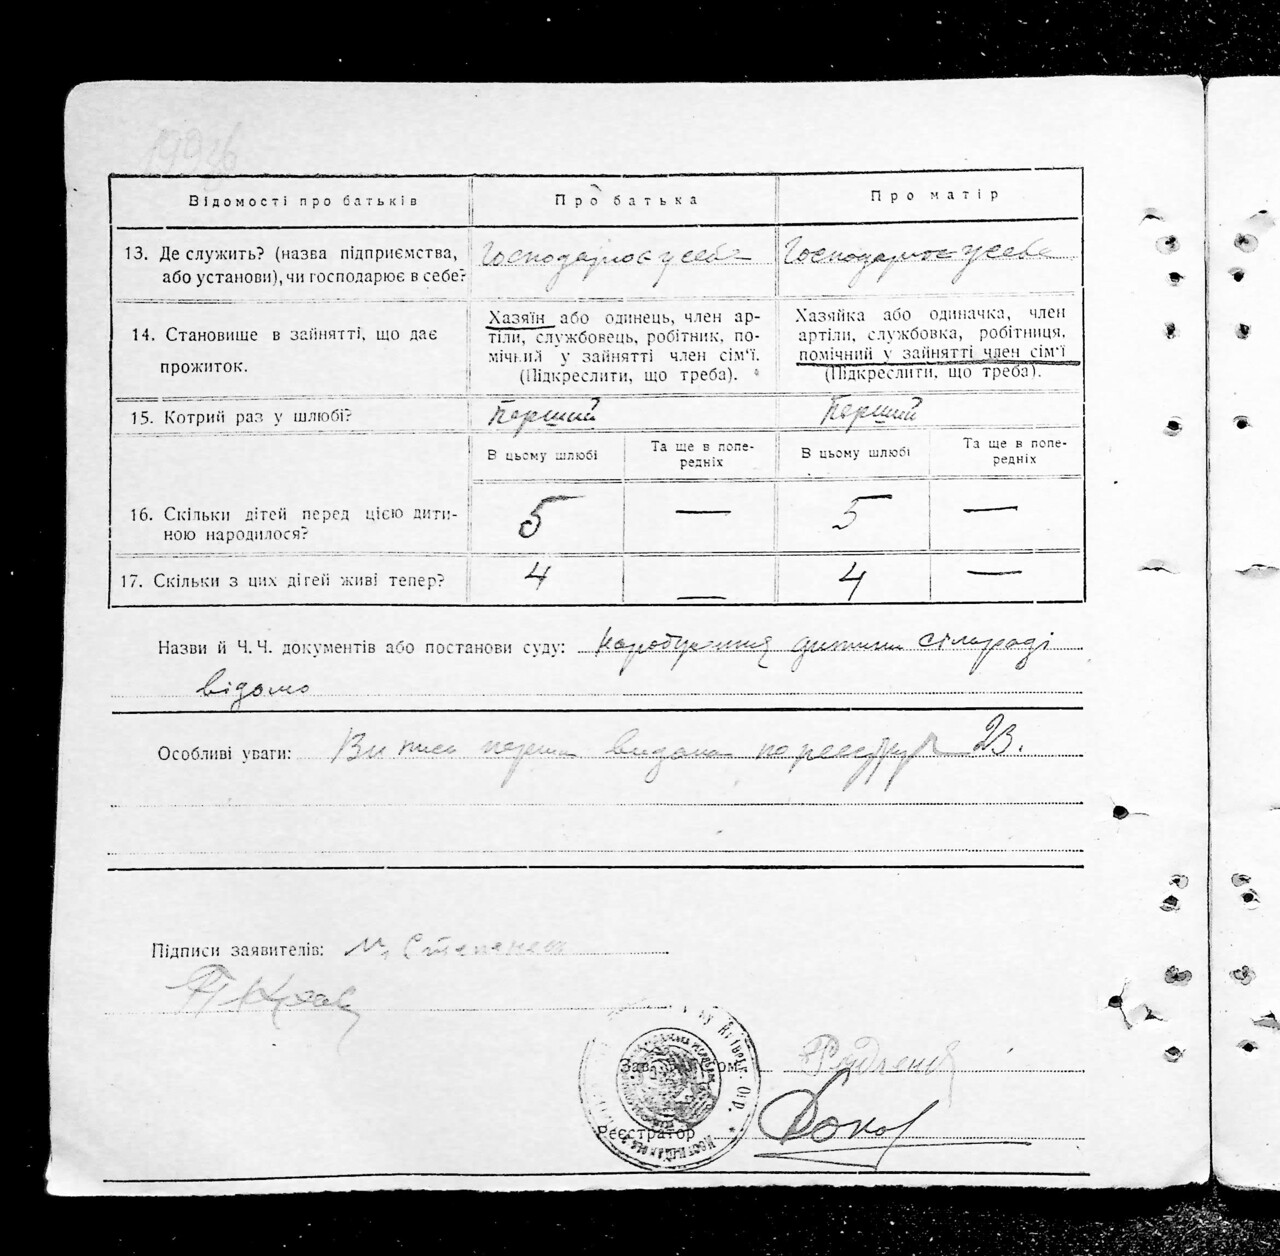 Відомості про батьків
Про батька
Про матір
13. Де служить? (назва підприємства,
або установи), чи господарює в себе?
Господарює у себе
Господарює у себе
14. Становище в зайнятті, що дає
прожиток.
Хазяїн або одинець, член ар-
тілі, службовець, робітник, по-
мічний у зайнятті член сім'ї.
(Підкреслити, що треба).
Хазяйка або одиначка, член
артілі, службовка, робітниця,
помічний у зайнятті член сім'ї
(Підкреслити, що треба).
15. Котрий раз у шлюбі?
Перший
Перший
В цьому шлюбі
Та ще в попе-
редніх
В цьому шлюбі
Та ще в попе-
редніх
16. Скільки дітей перед цією дити-
ною народилося?
5
—
5
—
17. Скільки з цих дітей живі тепер?
4
—
4
—
Назви й Ч.Ч. документів або постанови суду: народження дитини сільраді
відомо
Особливі уваги: Випись перша видана по реєстру 23.
Підписи заявителів:
Зав.
Реєстратор